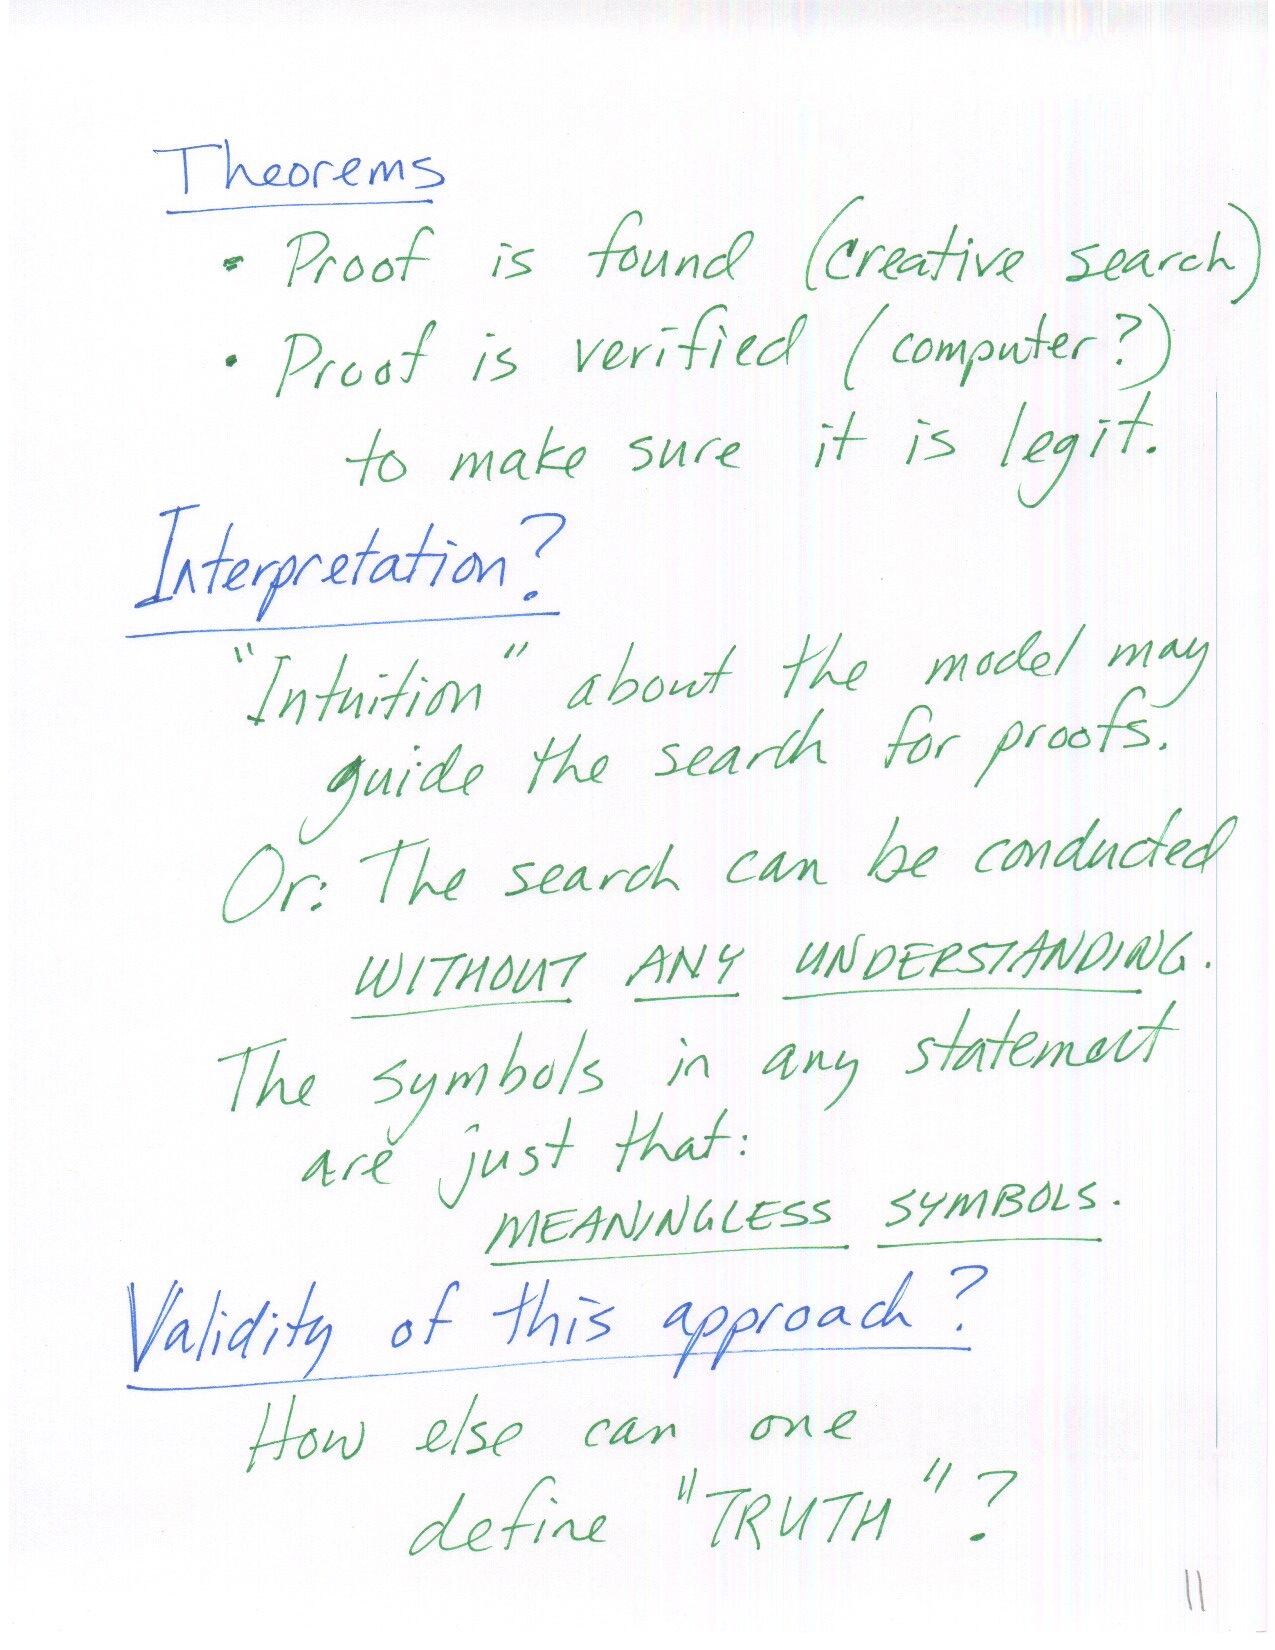 Theorems
• Proof is found (creative search)
• Proof is verified (computer?)
to make sure it is legit.
Interpretation?
"Intuition" about the model may
guide the search for proofs.
Or: The search can be conducted
WITHOUT ANY UNDERSTANDING.
The symbols in any statement
are just that:
MEANINGLESS SYMBOLS.
Validity of this approach?
How else can one
define "TRUTH"?
11